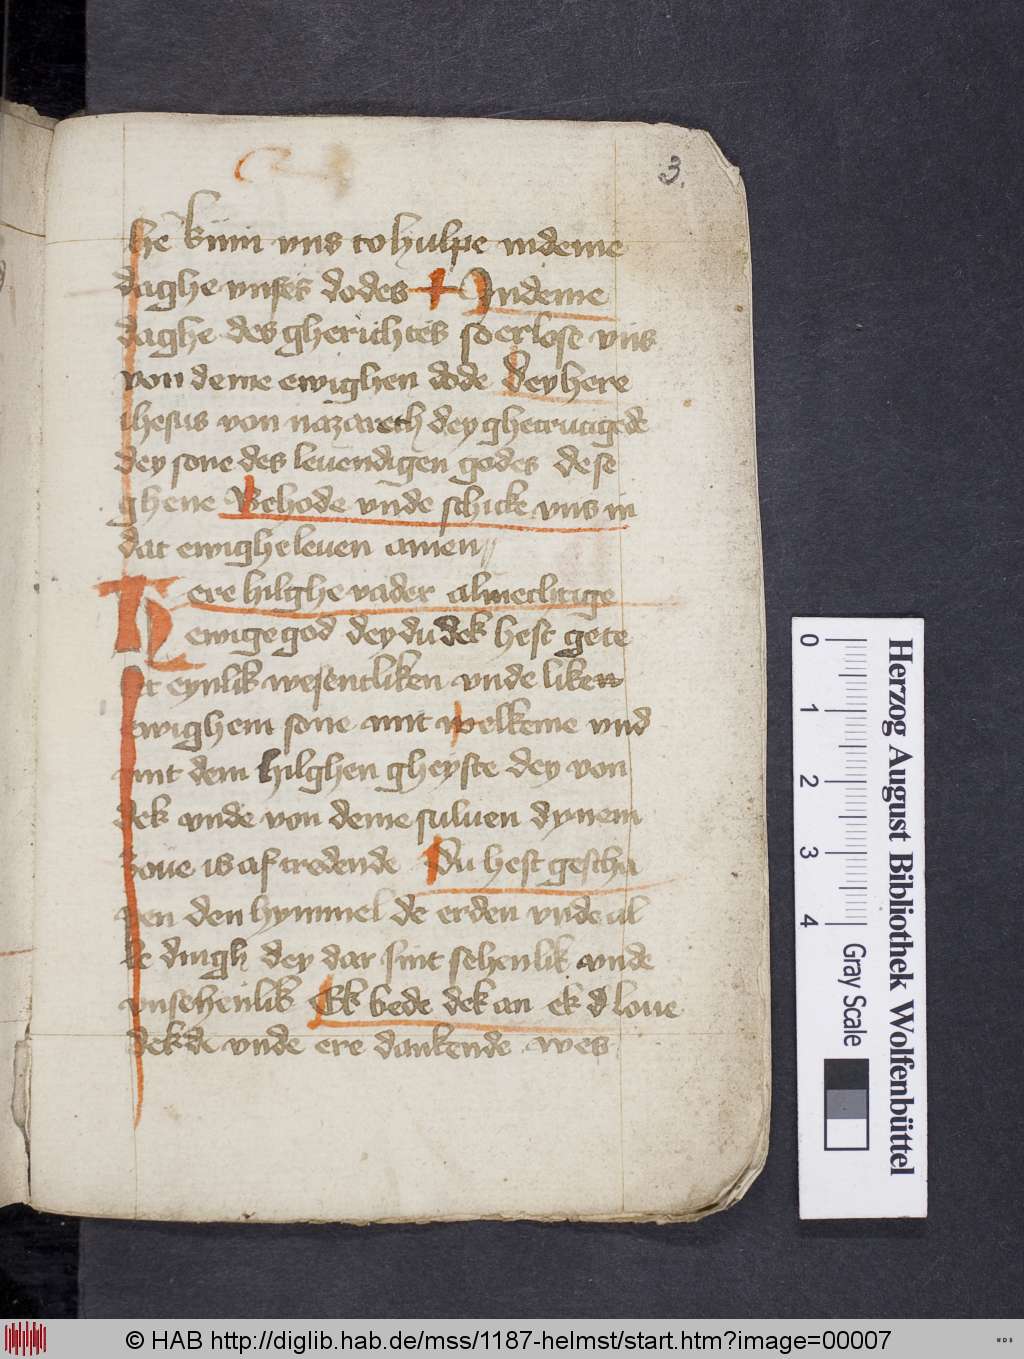 3.
he kum vns to hulpe indeme
daghe vnses dodes + Indeme
daghe des gherichtes so erlose vns
von deme ewighen dode Dey here
ihesus von nazareth dey ghecrucigede
dey sone des leuendigen godes dese
ghene Behode vnde schicke vns in
dat ewighe leuen amen
Here hilghe vader almechtige
ewige god dey du dek hest gete
let eynlik wesentliken vnde liken
ewighem sone mit welkeme vnd
mit dem hilghen gheyste dey von
dek vnde von deme suluen dynem
sone is af tredende Du hest gescha
pen den hymmel de erden vnde al
le dingh dey dar sint sehenlik vnde
vnsehenlik Ek bede dek an ek loue
dek vnde ere dankende wes
Herzog August Bibliothek Wolfenbüttel
0 1 2 3 4 Gray Scale
© HAB http://diglib.hab.de/mss/1187-helmst/start.htm?image=00007